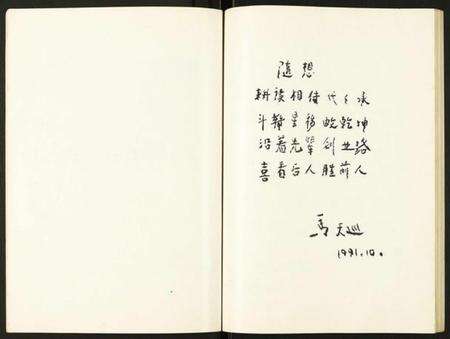 随想
耕读相传代々承
斗转星移乾坤
沿着先辈创业路
喜看后人胜前人
馬天巡
1991.10.